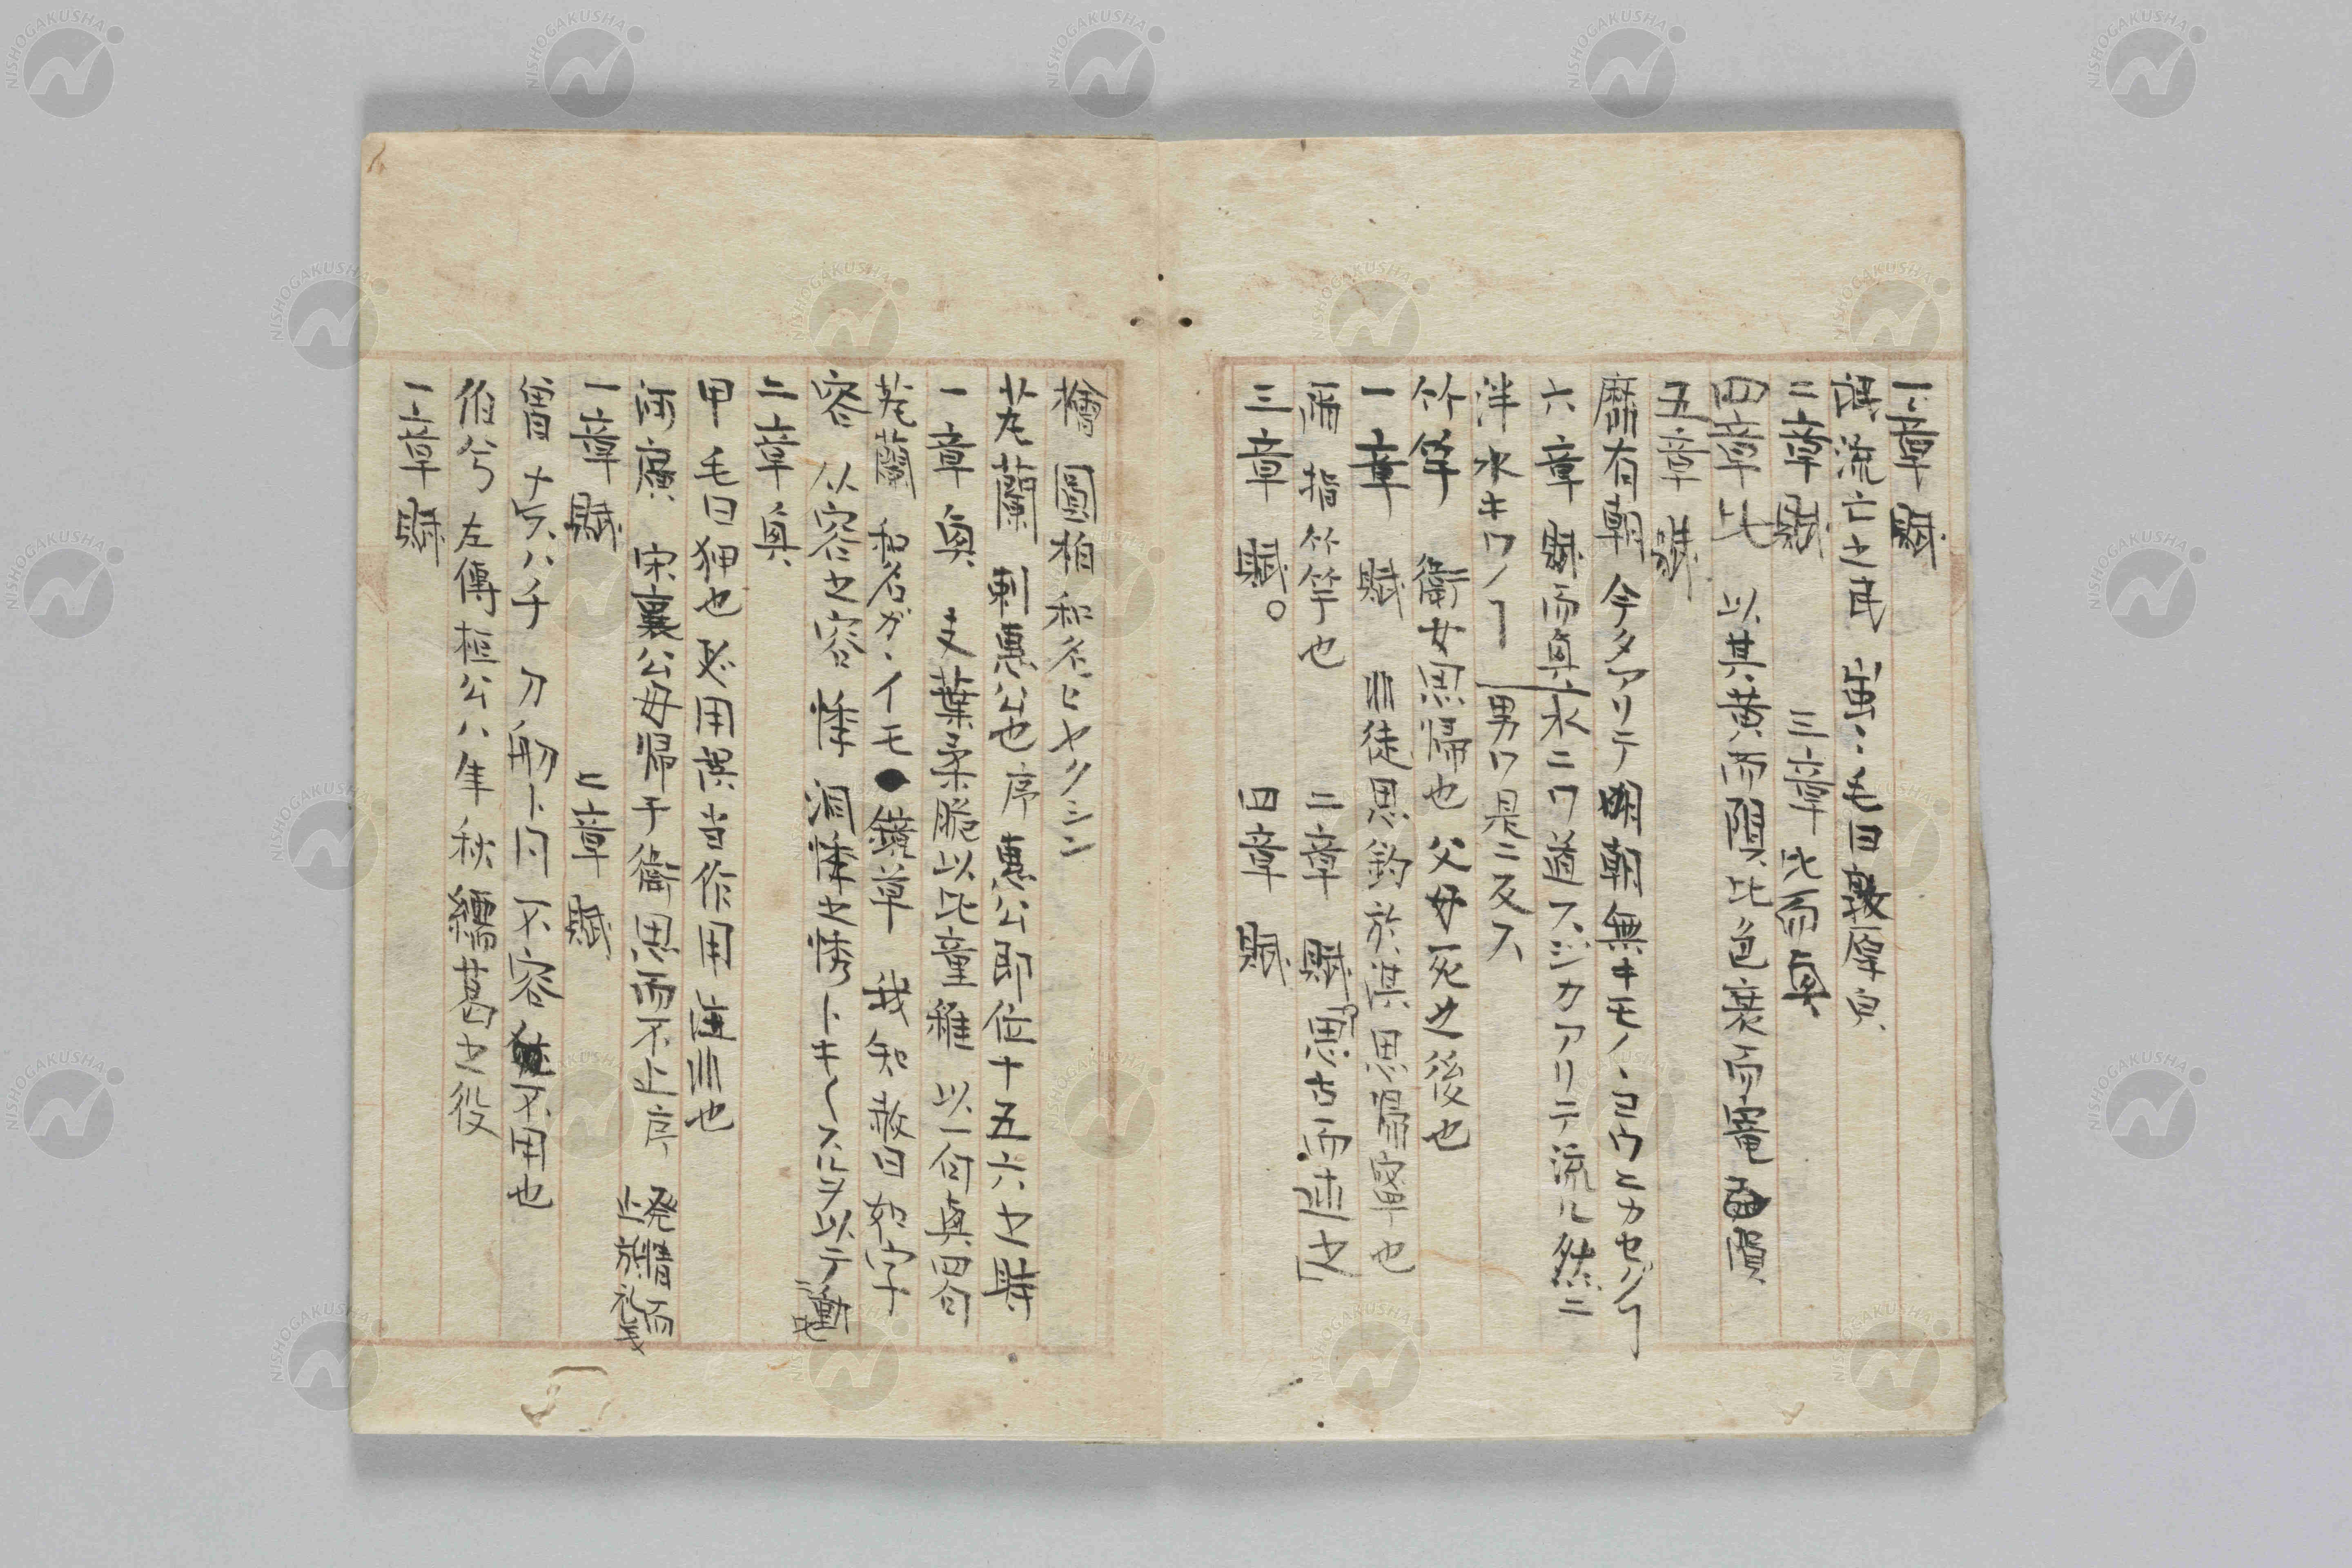 一章 賦
氓 流亡之民 蚩〻 毛曰敦厚皃
二章 賦 三章 比而興
四章 比 以其黄而隕比色衰而竄 隕
五章 賦
靡有朝 今夕アリテ明朝無キモノ
六章 賦而興 水ニワ道スジカアリテ流ル然ニ
泮 水キワノ 男ワ是ニ反ス
竹竿 衛女思帰也 父母死之後也
一章 賦 非徒思釣於淇思帰寧也
爾 指竹竿也 二章 賦 思古而述之
三章 賦。 四章 賦
檜 圓柏 和名ヒヤクシン
芄蘭 刺惠公也 序 惠公即位十五六之時
一章 興 支葉柔脆以比童稚 以一句興四句
芄蘭 和名ガヽイモ 鏡草 我知 毅曰如字
容 从容之容 悸
二章 興
甲 毛曰狎也 必用 当作用 非也
河廣 宋襄公母帰于衛思而不止序 発情而止於礼義
一章 賦 二章 賦
曾 ナンスレハチ 刀 舠ト同 不容 不用也
伯兮 左傳桓公八年秋繻葛之役
一章 賦
NISHOGAKUSHA